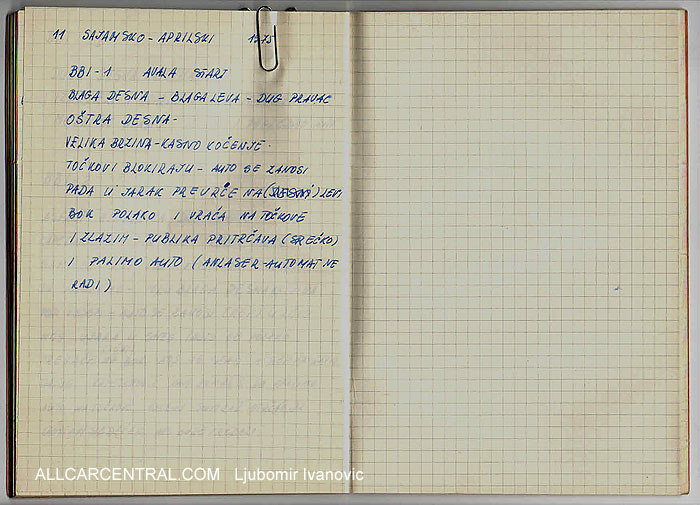 11 SAJAMSKO - APRILSKI 1975
BBI-1 AVALA START
BLAGA DESNA - BLAGA LEVA - DUG PRAVAC
OŠTRA DESNA -
VELIKA BRZINA - KASNO KOČENJE.
TOČKOVI BLOKIRAJU - AUTO SE ZANOSI
PADA U JARAK PREVRĆE NA ( ) LEVI
BOK POLAKO I VRAĆA NA TOČKOVE
IZLAZIM - PUBLIKA PRITRČAVA (SREĆKO)
I PALIMO AUTO (ANLASER-AUTOMAT NE
RADI)
ALLCARCENTRAL.COM Ljubomir Ivanovic